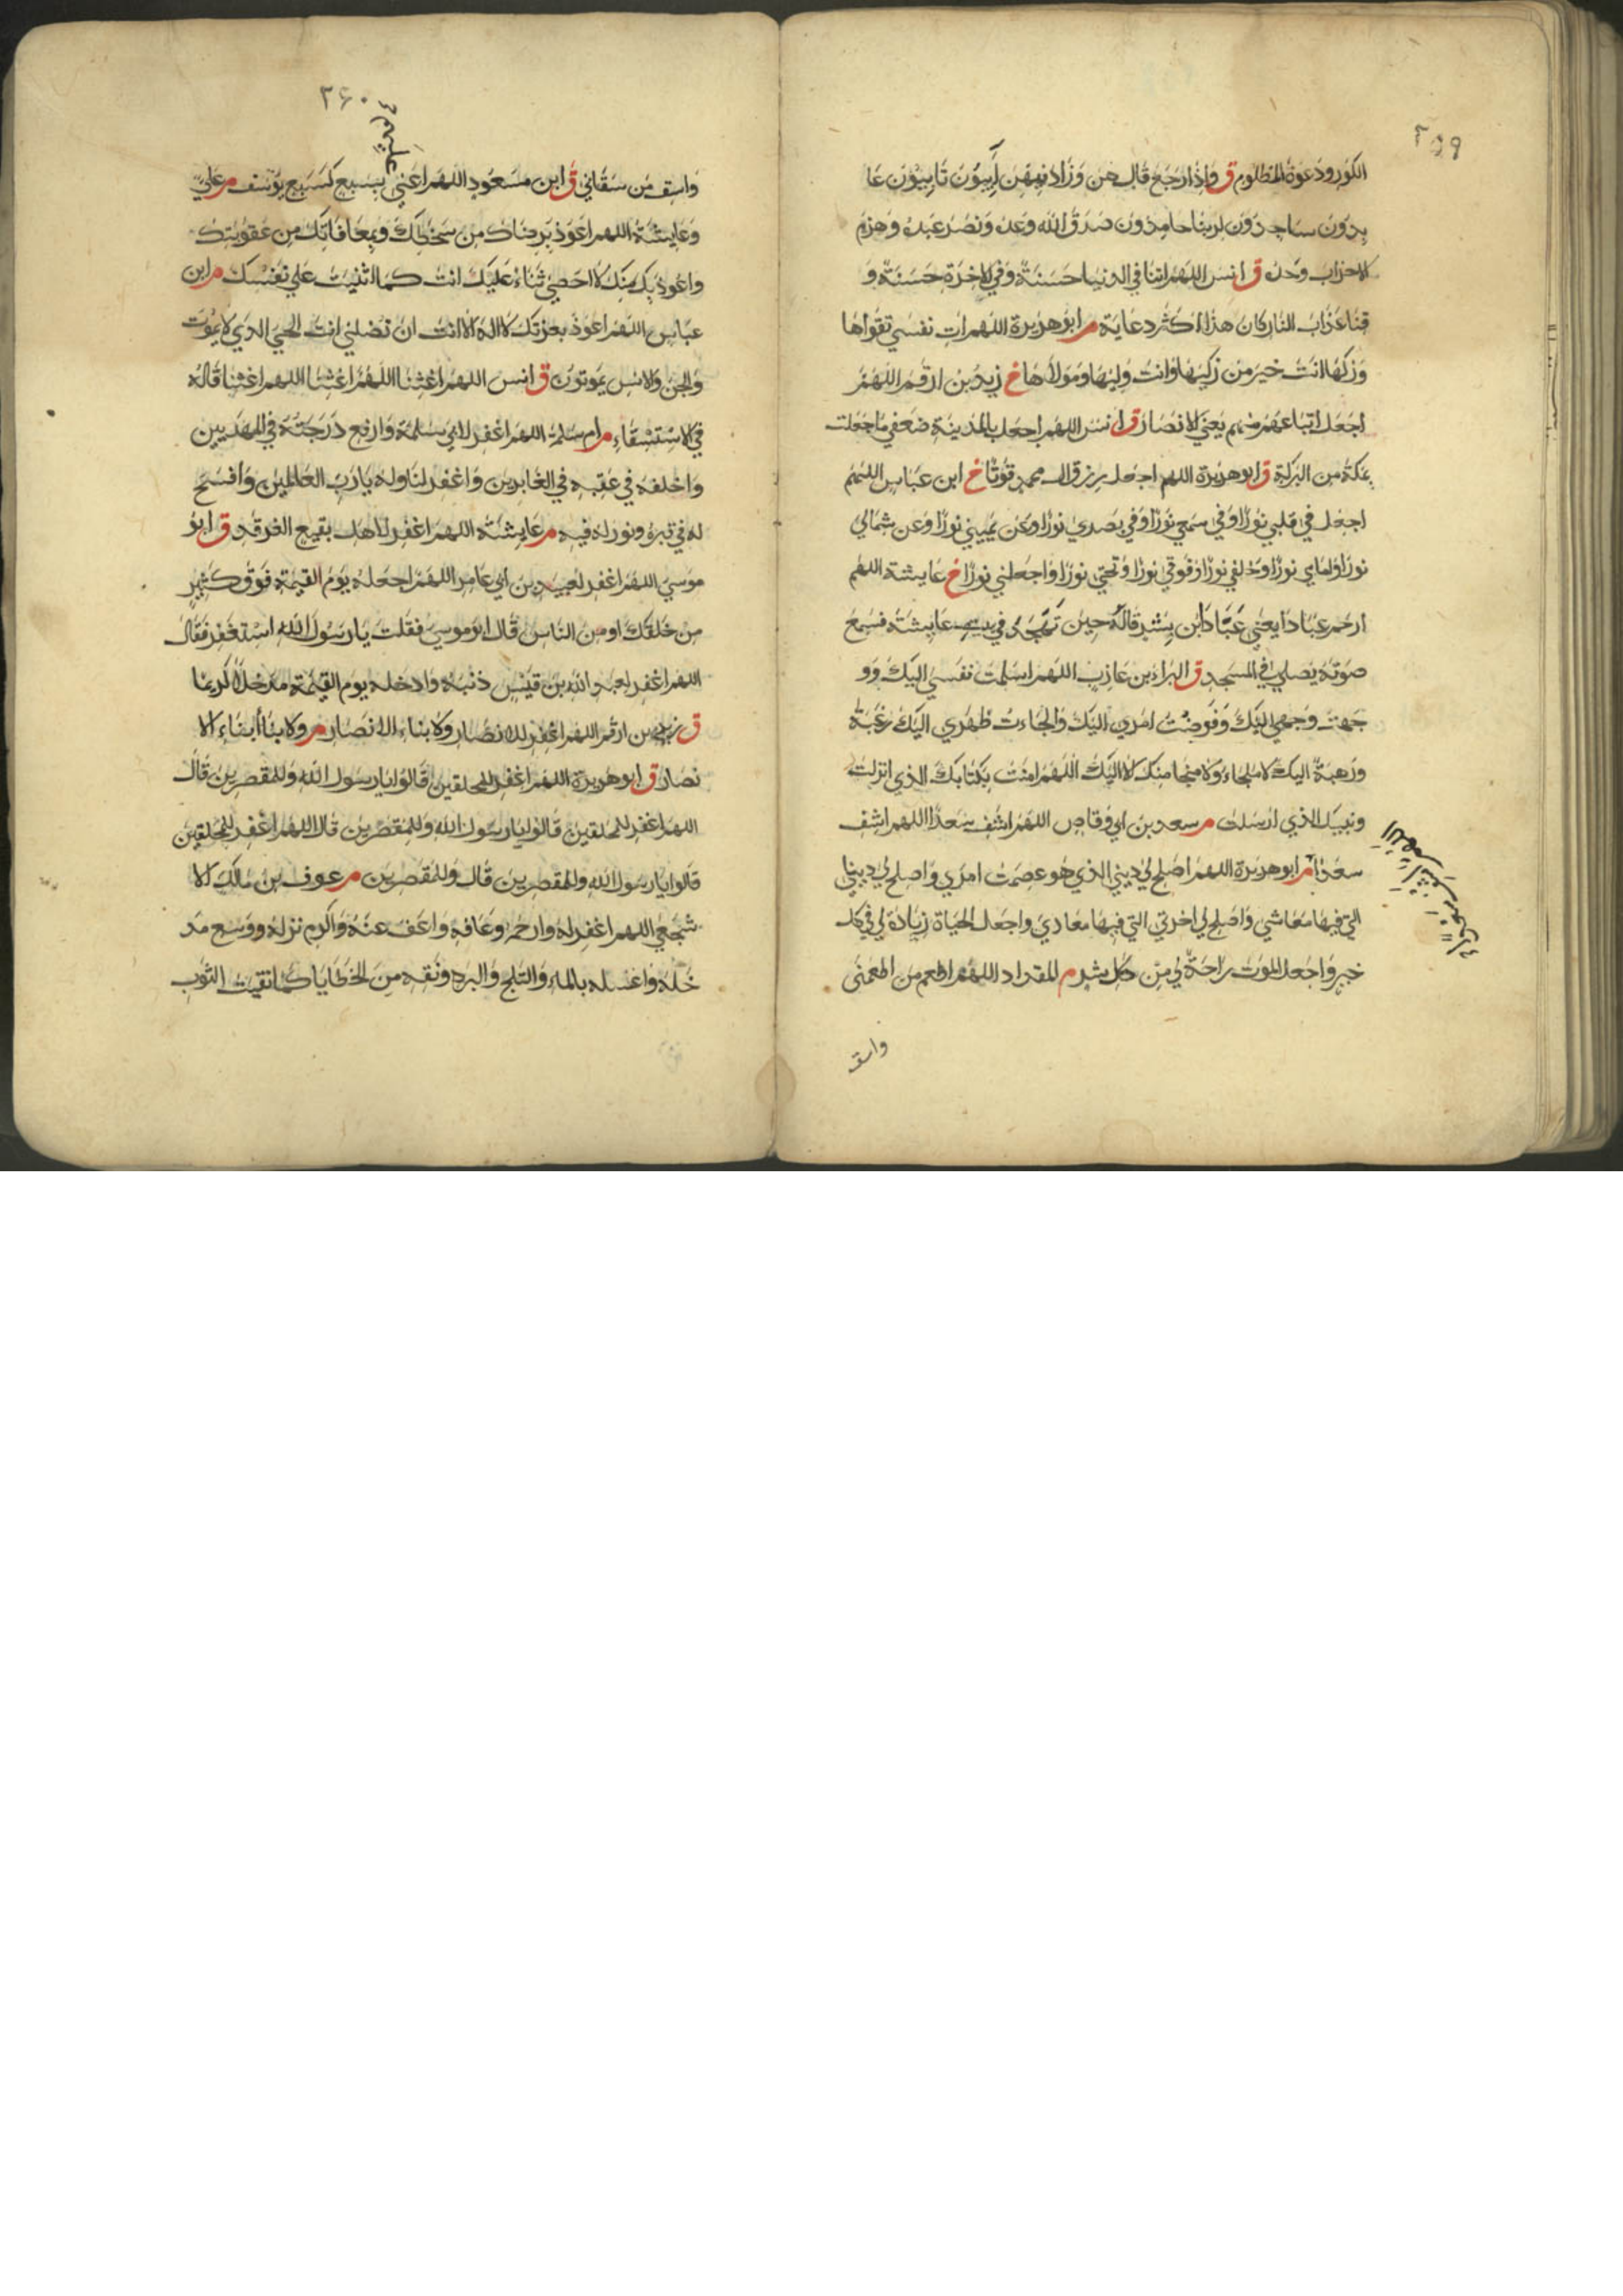 ٢٥٩
الكور ودعوة المظلوم ق واذا رجع قال هن وزاد فيهن آيبون تايبون عا
بدون ساجدون لربنا حامدون صدق الله وعده ونصر عبده وهزم
الاحزاب وحده ق انس اللهم اتنا في الدنيا حسنة وفي الاخرة حسنة و
قنا عذاب النار كان هذا اكثر دعايه م ابو هريرة اللهم ات نفسي تقواها
وزكها انت خير من زكيها وانت وليها ومولاها خ زيد بن ارقم اللهم
اجعل اتباعهم منهم يعني الانصار ق انس اللهم اجعل بالمدينة ضعفي ما جعلت
بمكة من البركة ق ابو هريرة اللهم اجعل رزق ال محمد قوتا خ ابن عباس اللهم
اجعل في قلبي نورا وفي سمعي نورا وفي بصري نورا وعن يميني نورا وعن شمالي
نورا وامامي نورا وخلفي نورا وفوقي نورا وتحتي نورا واجعلني نورا خ عايشة اللهم
ارحم عبادا يعني عبادا بن بشر قاله حين تهجد في بيت عايشة فسمع
صوته يصلي في المسجد ق البراء بن عازب اللهم اسلمت نفسي اليك وو
جهت وجهي اليك وفوضت امري اليك والجاءت ظهري اليك رغبة
ورهبة اليك لا ملجاء ولا منجا منك لا اليك اللهم امنت بكتابك الذي انزلت
ونبيك الذي ارسلت م سعد بن ابي وقاص اللهم اشف سعدا اللهم اشف
سعدا م ابو هريرة اللهم اصلح لي ديني الذي هو عصمت امري واصلح لي دنياي
التي فيها معاشي واصلح لي اخرتي التي فيها معادي واجعل الحياة زيادة لي في كل
خير واجعل الموت راحة لي من كل شر م المقداد اللهم اطعم من اطعمني
واسق
٢٦٠
واسق من سقاني ق ابن مسعود اللهم اعني بسبع كسبع يوسف م علي
وعايشة اللهم اعوذ برضاك من سخطك وبمعافاتك من عقوبتك
واعوذ بك منك لا احصي ثناء عليك انت كما اثنيت على نفسك م ابن
عباس اللهم اعوذ بعزتك لا اله الا انت ان تضلني انت الحي الذي لا يموت
والجن والانس يموتون ق انس اللهم اغثنا اللهم اغثنا اللهم اغثنا قاله
في الاستسقاء م ام سلمة اللهم اغفر لابي سلمة وارفع درجته في المهديين
واخلفه في عقبه في الغابرين واغفر لنا وله يا رب العالمين وافسح
له في قبره ونور له فيه م عايشة اللهم اغفر لاهل بقيع الغرقد ق ابو
موسي اللهم اغفر لعبيد بن ابي عامر اللهم اجعله يوم القيمة فوق كثير
من خلقك او من الناس قال ابو موسي فقلت يا رسول الله استغفر فقال
اللهم اغفر لعبد الله بن قيس ذنبه وادخله يوم القيمة مدخلا كريما
ق زيد بن ارقم اللهم اغفر للانصار ولابناء الانصار م ولابنا أبناء الا
نصار ق ابو هريرة اللهم اغفر للمحلقين قالوا يا رسول الله وللمقصرين قال
اللهم اغفر للمحلقين قالوا يا رسول الله وللمقصرين قال اللهم اغفر للمحلقين
قالوا يا رسول الله وللمقصرين قال وللمقصرين م عوف بن مالك الا
شجعي اللهم اغفر له وارحمه وعافه واعف عنه واكرم نزله ووسع مد
خله واغسله بالماء والثلج والبرد ونقه من الخطايا كما نقيت الثوب